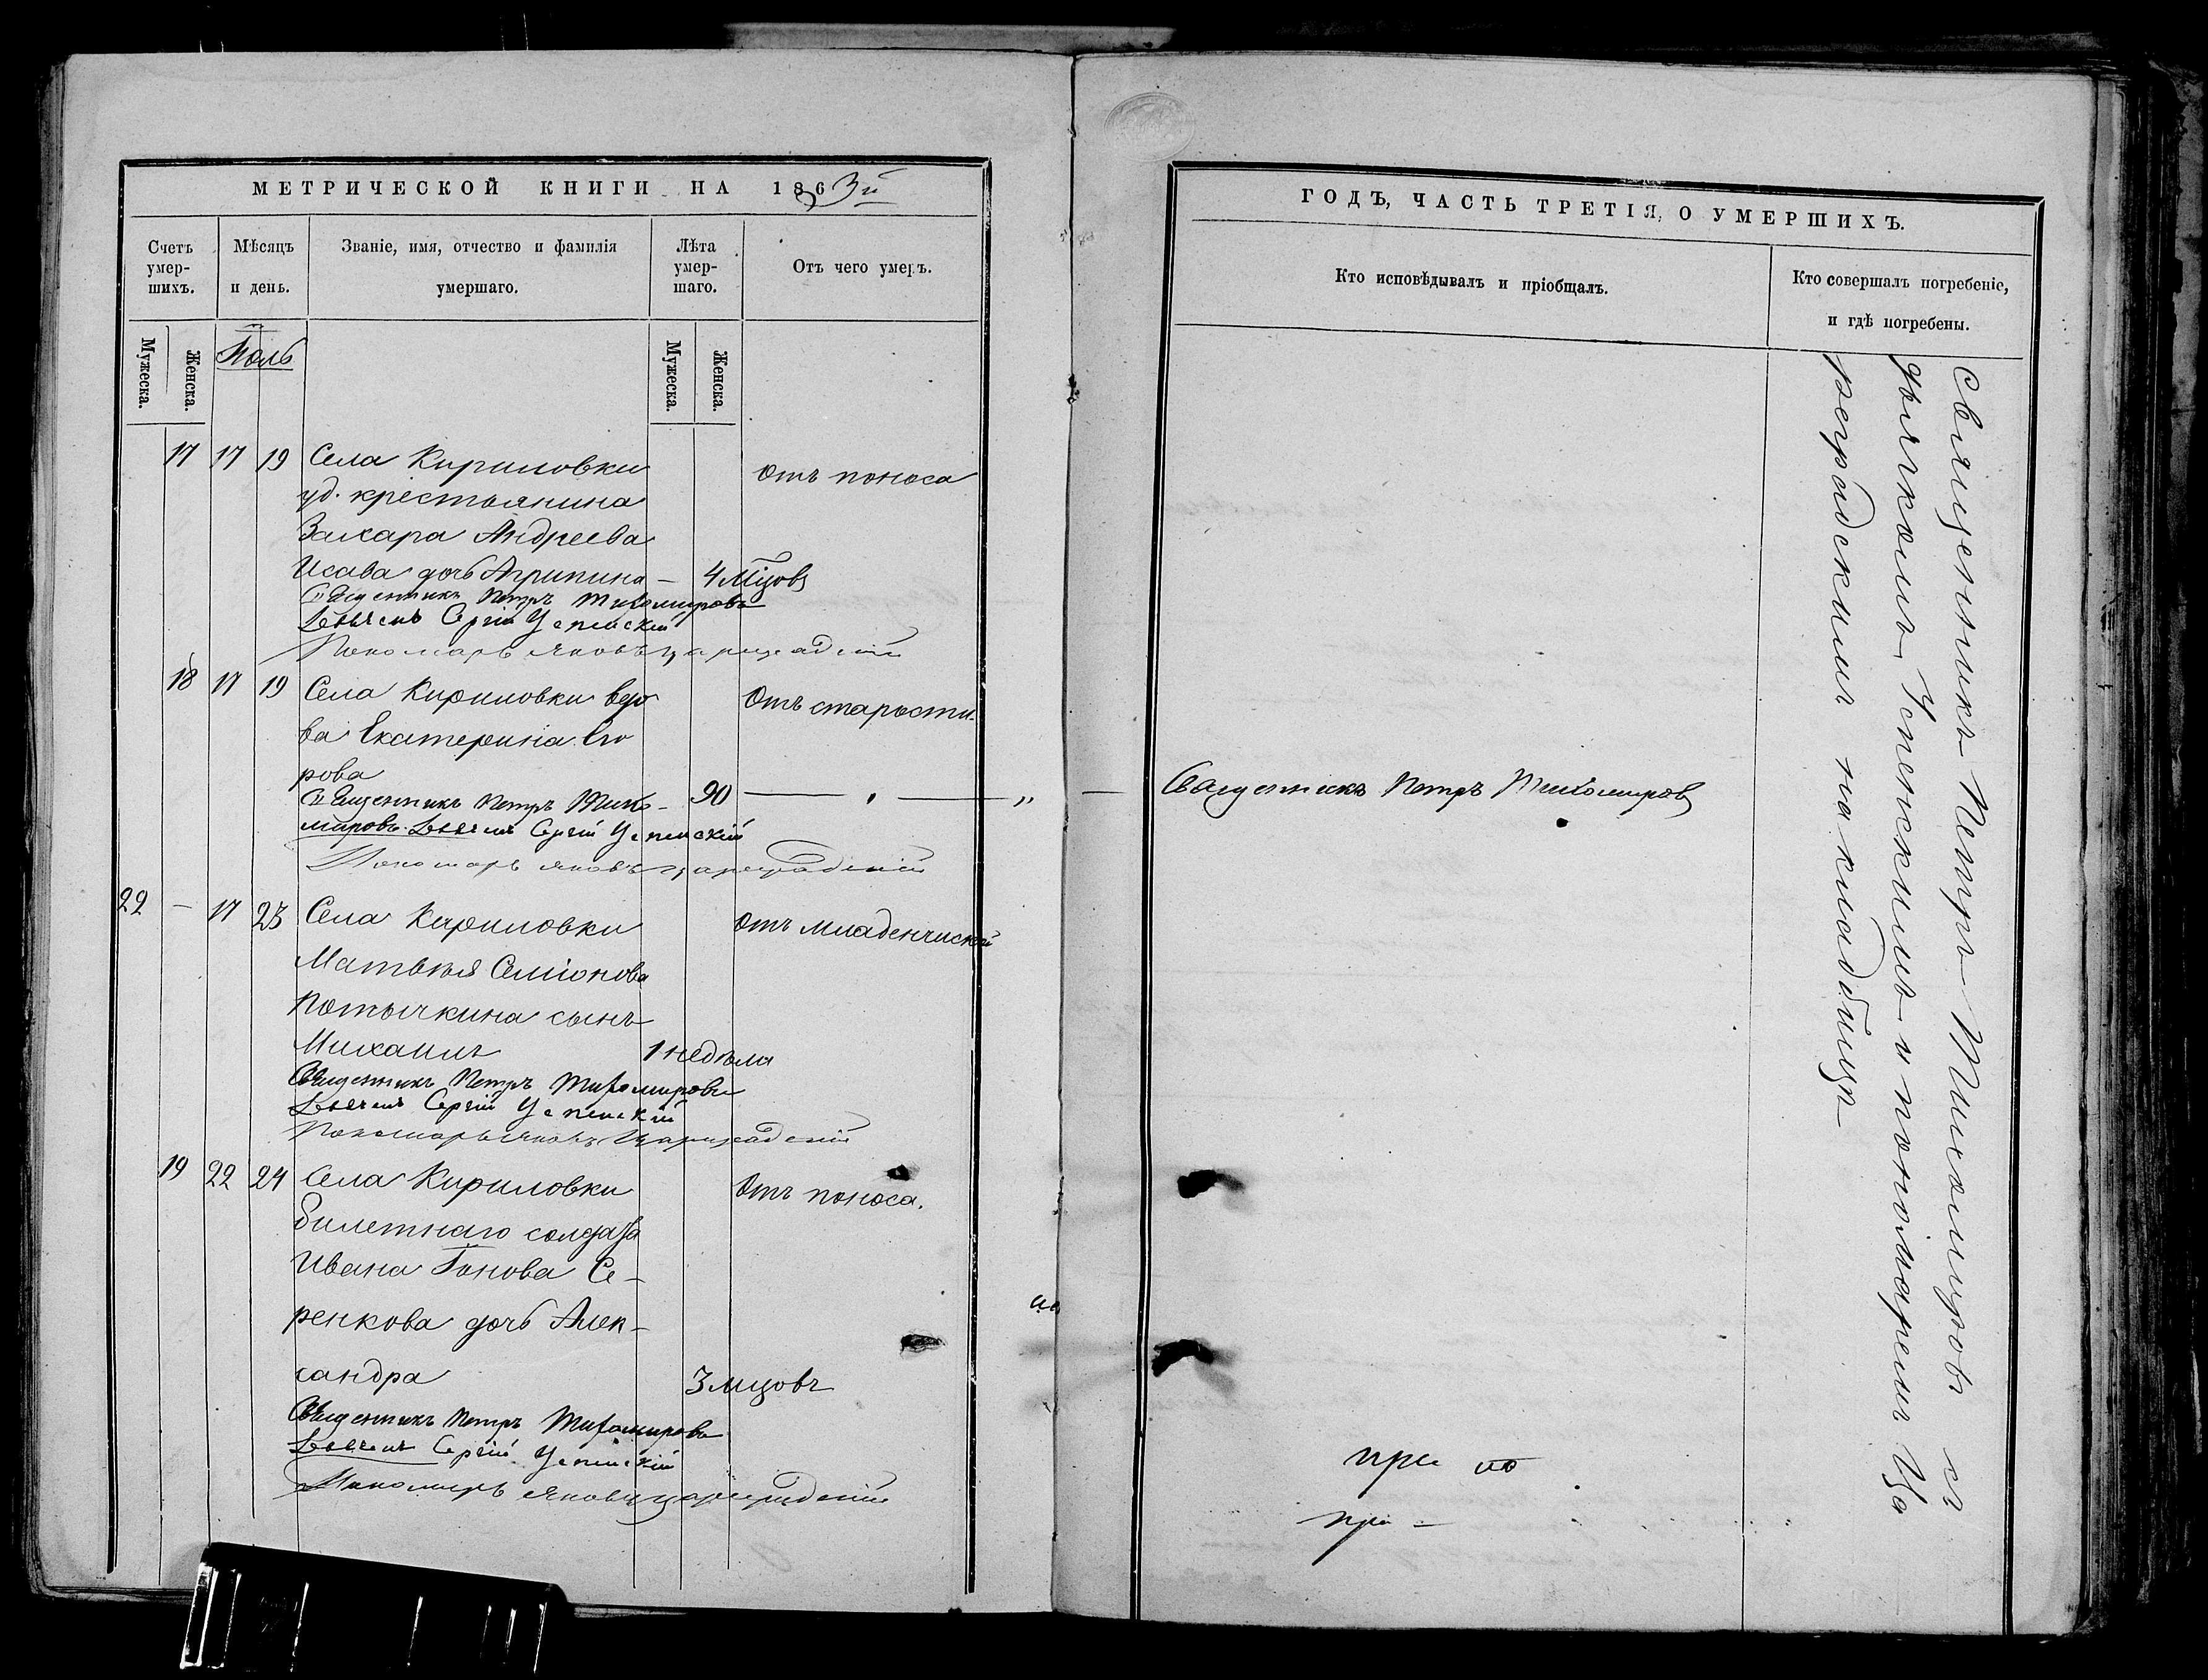 МЕТРИЧЕСКОЙ КНИГИ НА 1863й
Счетъ умер-шихъ.
Мѣсяцъ и день.
Званіе, имя, отчество и фамилія умершаго.
Лѣта умер-шаго.
Отъ чего умеръ.
Мужеска.
Женска.
Іюль
Мужеска.
Женска.
17 17 19 Села Кириловки Отъ поноса
уд. крестьянина
Захара Андреева
Исава дочь Агрипина — 4 мцовъ
Священникъ Петръ Тихомировъ
Дьячекъ Сергій Успенскій
Пономарь Яковъ Цареградскій
18 17 19 Села Кириловки вдо Отъ старости.
ва Екатерина Его
рова 90 — " —
Священникъ Петръ Тихо-
мировъ Дьячекъ Сергій Успенскій
Пономарь Яковъ Цареградскій
22 — 17 23 Села Кириловки Отъ младенческой
Матвѣя Семіонова
Потычкина сынъ
Михаилъ 1 недѣля
Священникъ Петръ Тихомировъ
Дьячекъ Сергій Успенскій
Пономарь Яковъ Цареградскій
19 22 24 Села Кириловки Отъ поноса.
билетнаго солдата
Ивана Іонова Се-
ренкова дочь Алек-
сандра 3 мцовъ
Священникъ Петръ Тихомировъ
Дьячекъ Сергій Успенскій
Пономарь Яковъ Цареградскій
ГОДЪ, ЧАСТЬ ТРЕТІЯ, О УМЕРШИХЪ.
Кто исповѣдывалъ и пріобщалъ.
Кто совершалъ погребеніе, и гдѣ погребены.
— Священникъ Петръ Тихомировъ
Священникъ Петръ Тихомировъ съ
дьячкомъ Успенскимъ и пономаремъ Ца
реградскимъ на кладбищѣ
при
при —